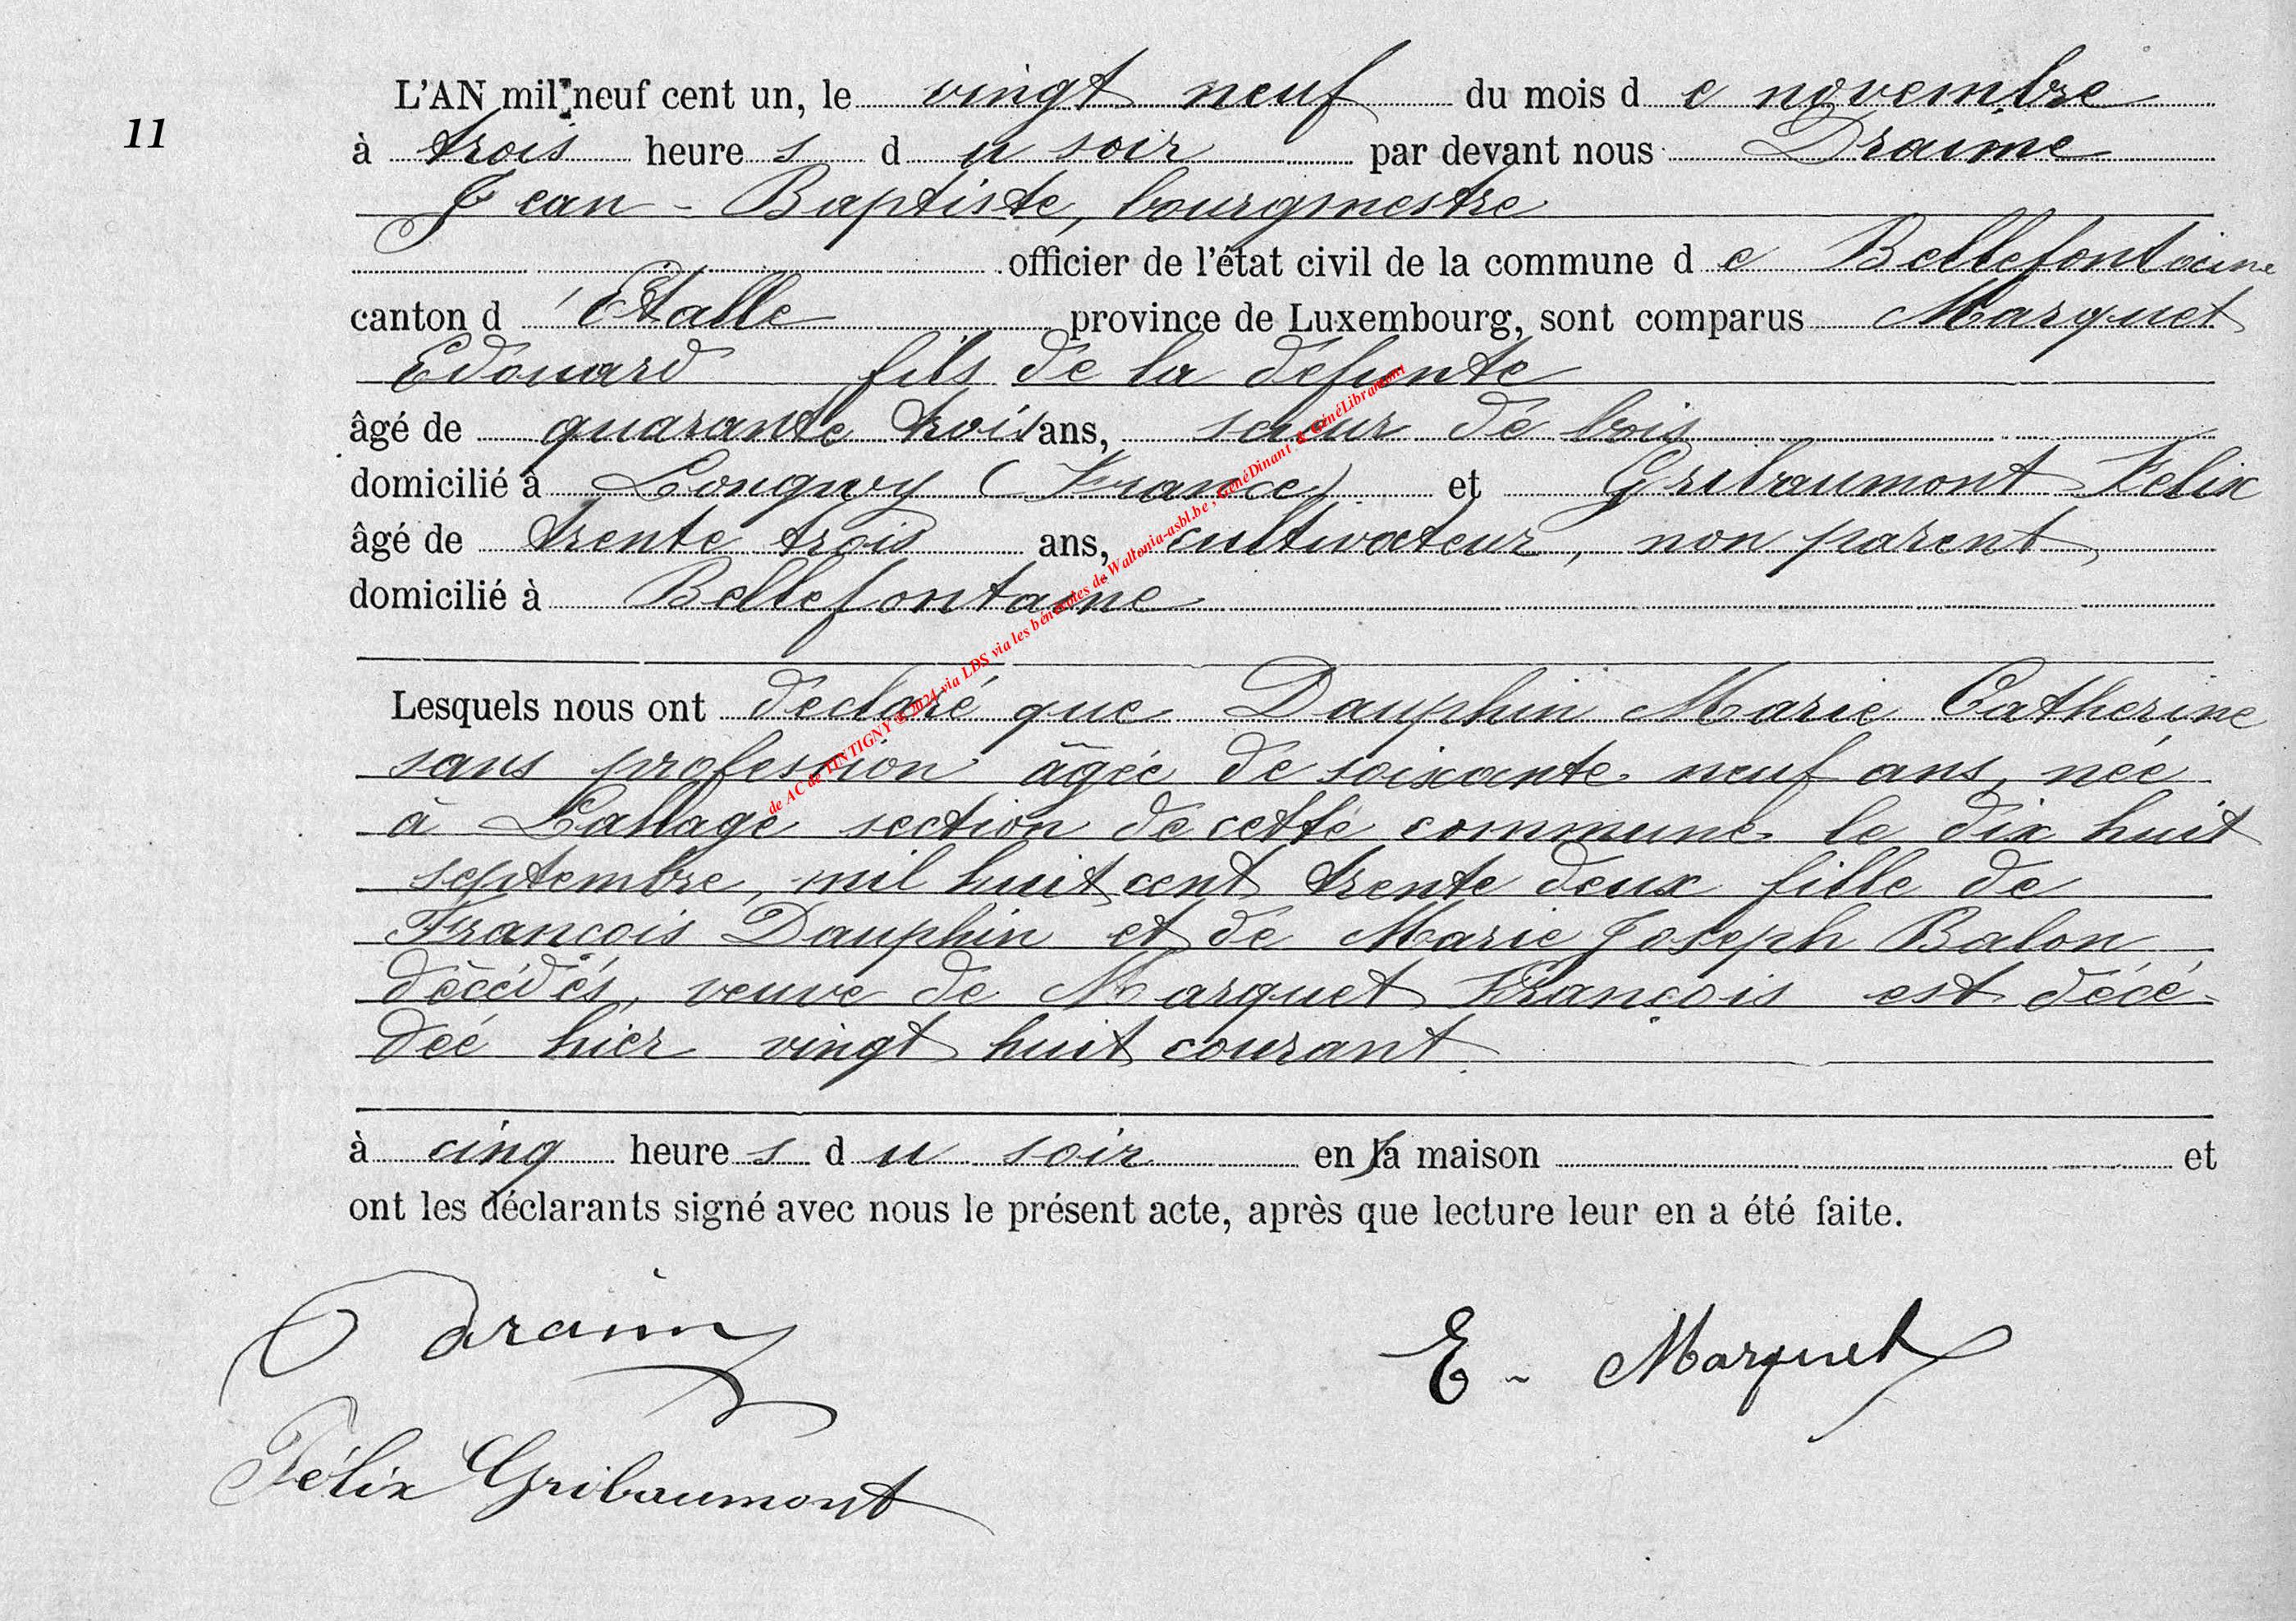 11
L'AN mil neuf cent un, le vingt neuf du mois d e novembre
à trois heure s d u soir par devant nous Draime
Jean-Baptiste, bourgmestre
officier de l'état civil de la commune d e Bellefontaine
canton d 'Etalle province de Luxembourg, sont comparus Marquet
Edouard fils de la défunte
âgé de quarante trois ans, scieur de bois
domicilié à Longwy (France) et Gribaumont Felix
âgé de trente trois ans, cultivateur, non parent
domicilié à Bellefontaine
Lesquels nous ont déclaré que Dauphin Marie Catherine
sans profession âgée de soixante neuf ans, née
à Lahage section de cette commune le dix huit
septembre, mil huit cent trente deux fille de
François Dauphin et de Marie Joseph Balon
décédés, veuve de Marquet François est décé-
deé hier vingt huit courant
à cinq heure s d u soir en sa maison et
ont les déclarants signé avec nous le présent acte, après que lecture leur en a été faite.
Draime
E - Marquet
Félix Gribaumont
de AC de TINTIGNY © 2024 via LDS via les bénévoles de Wallonia-asbl.be , GénéDinant & GénéLibramont